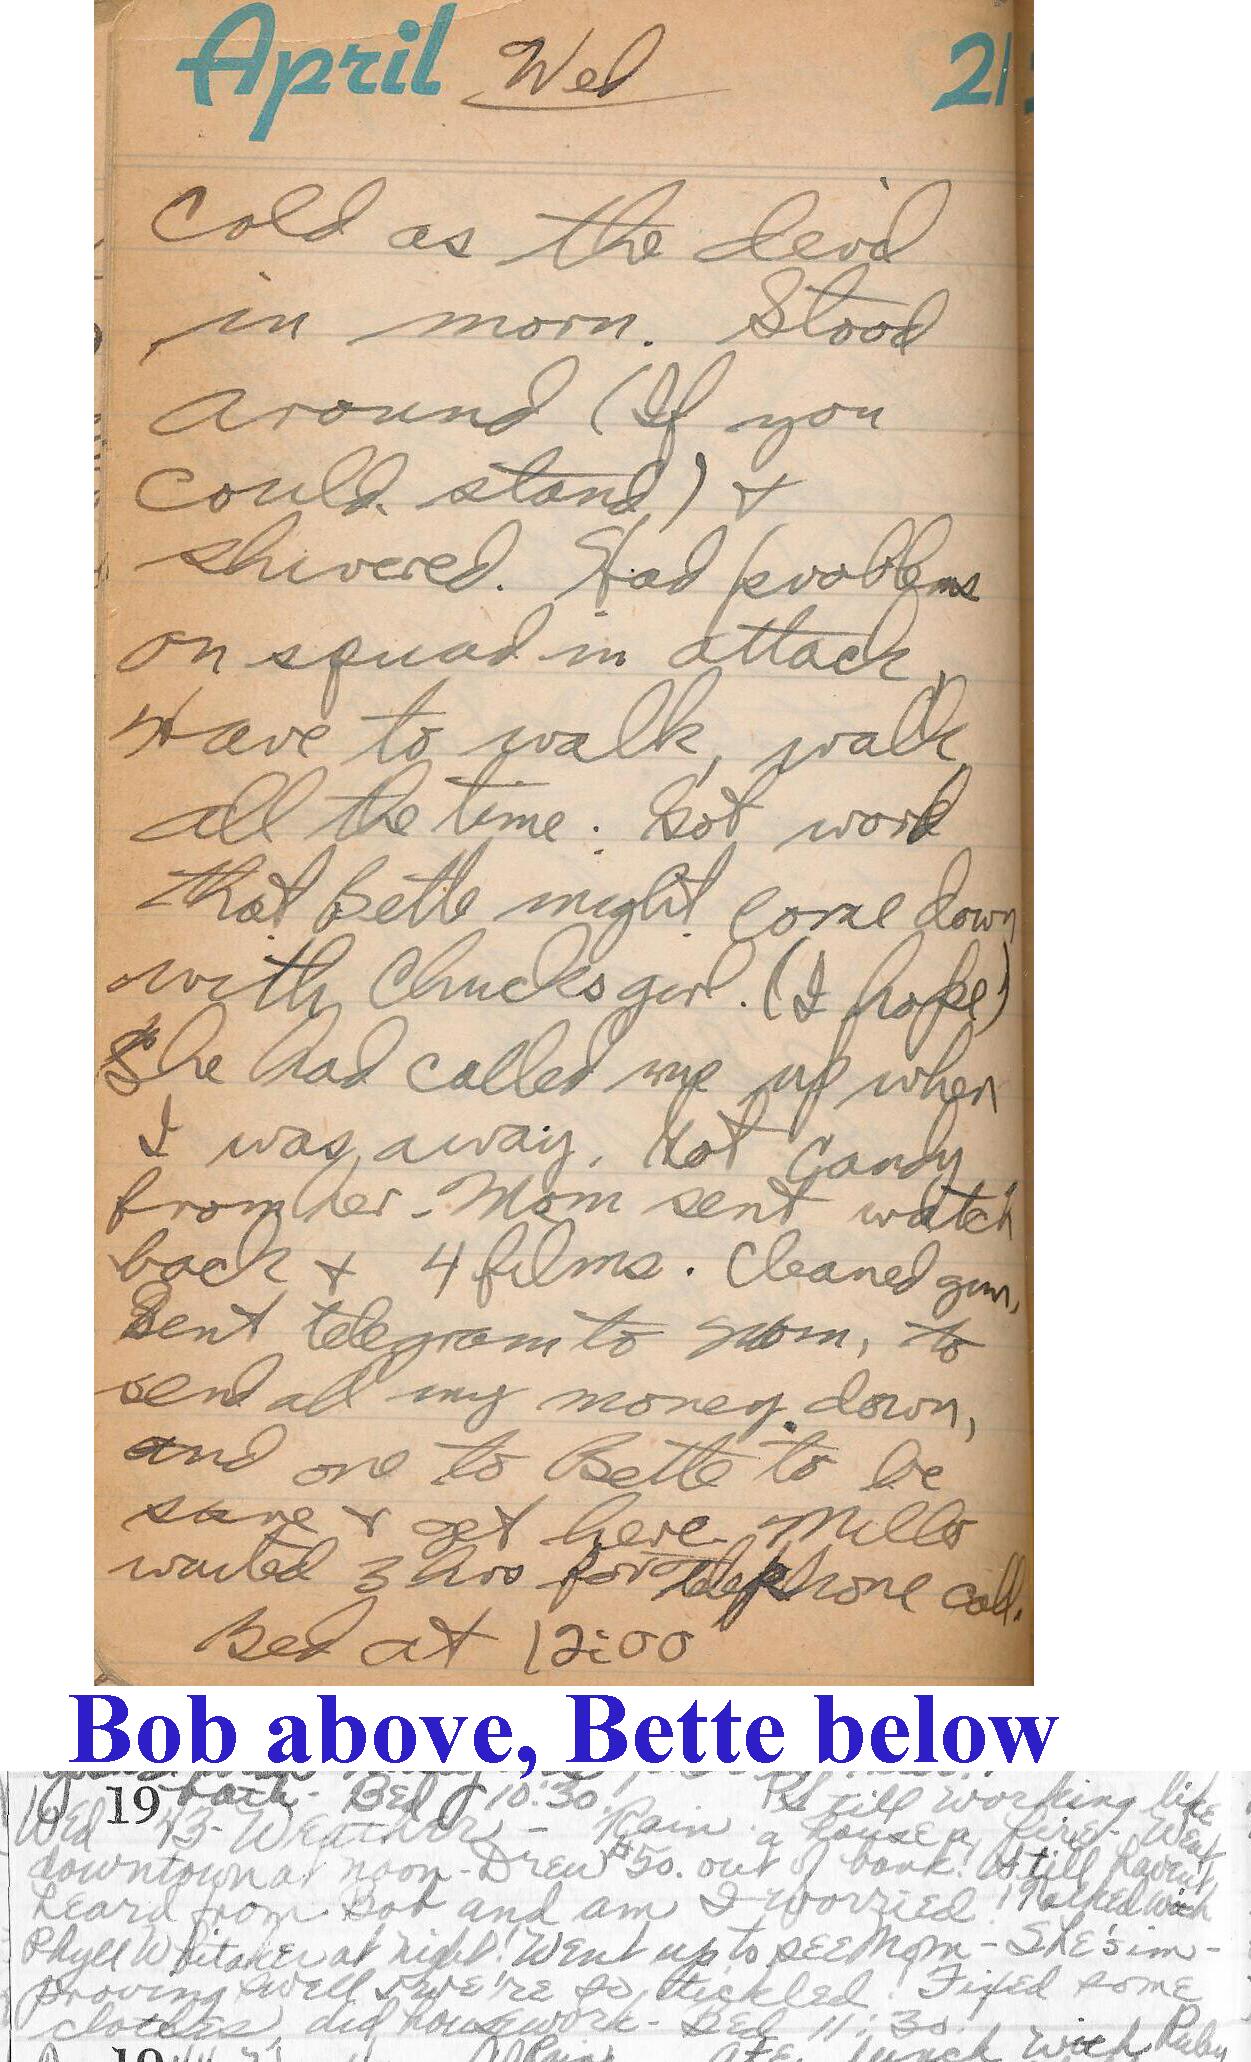 April Wed 21
Cold as the devil
in morn. Stood
around (If you
could stand) +
shivered. Had problems
on squad in attack,
Have to walk, walk
all the time. Got word
that Bette might come down
with Chucks girl. (I hope)
She had called me up when
I was away. Got candy
from her - Mom sent watch
back + 4 films. Cleaned gun,
Sent telegram to Mom, to
send all my money down,
and one to Bette to be
sure + get here. Mills
waited 3 hrs for telephone call.
Bed at 12:00
Bob above, Bette below
19 bath - Bed 10:30. Still working like
Wed 43 - Weather - Rain a house a fire - Went
downtown at noon - Drew $50. out of bank! Still haven't
heard from Bob and am I worried! Talked with
Phyll Whitaker at night! Went up to see Mom - She's im-
proving swell & we're so tickled. Fixed some
clothes, did housework - Bed 11:30.
19 lunch with Ruby